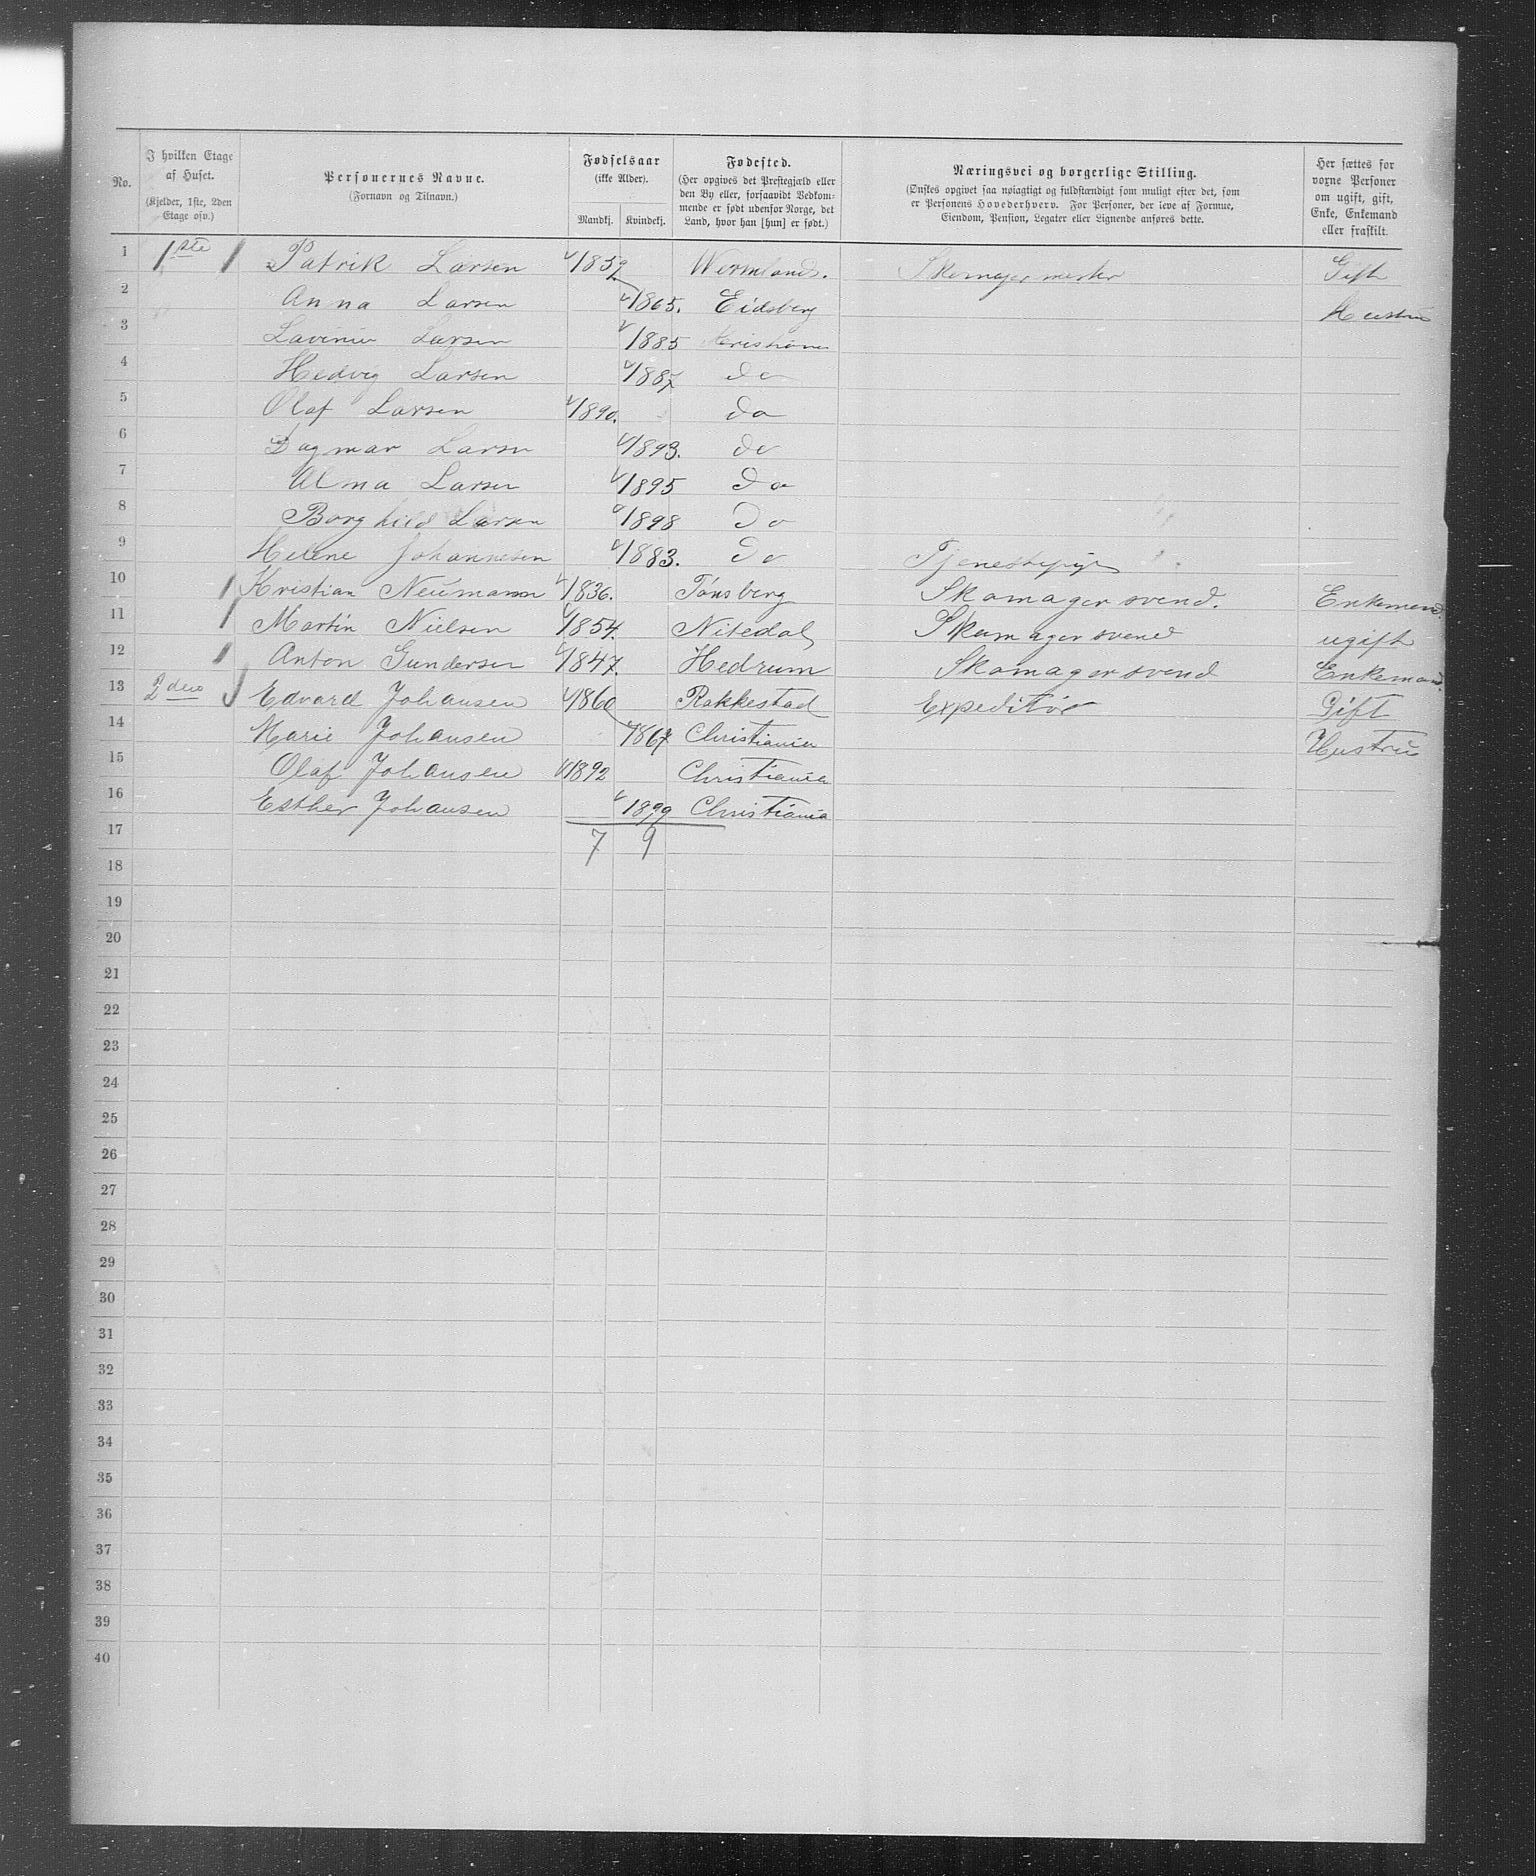 No.
I hvilken Etage af Huset.
(Kjelder, 1ste, 2den Etage osv.)
Personernes Navne.
(Fornavn og Tilnavn.)
Fødselsaar
(ikke Alder).
Mandkj. Kvindekj.
Fødested.
(Her opgives det Prestegjæld eller den By eller, forsaavidt Vedkommende er født udenfor Norge, det Land, hvor han [hun] er født.)
Næringsvei og borgerlige Stilling.
(Ønskes opgivet saa nøiagtigt og fuldstændigt som muligt efter det, som er Personens Hovederhverv. For Personer, der leve af Formue, Eiendom, Pension, Legater eller Lignende anføres dette.
Her sættes for voxne Personer om ugift, gift, Enke, Enkemand eller fraskilt.
1 1ste Patrik Larsen 1859 Wermland. Skomagermester Gift
2 Anna Larsen 1865. Eidsberg Hustru
3 Lavinia Larsen 1885 Kristiania
4 Hedvig Larsen 1887 do
5 Olaf Larsen 1890. do
6 Dagmar Larsen 1893. do
7 Alma Larsen 1895 do
8 Borghild Larsen 1898 do
9 Helene Johannesen 1883. do Tjenestepige
10 Kristian Neumann 1836. Tønsberg Skomagersvend. Enkemand.
11 Martin Nielsen 1854. Nitedal Skomagersvend ugift
12 Anton Gundersen 1847. Hedrum Skomagersvend Enkemand.
13 2den Edvard Johansen 1860 Rakkestad Expeditør Gift
14 Marie Johansen 1867 Christiania Hustru
15 Olaf Johansen 1892 Christiania
16 Esther Johansen 1899 Christiania
17 7 9
18
19
20
21
22
23
24
25
26
27
28
29
30
31
32
33
34
35
36
37
38
39
40